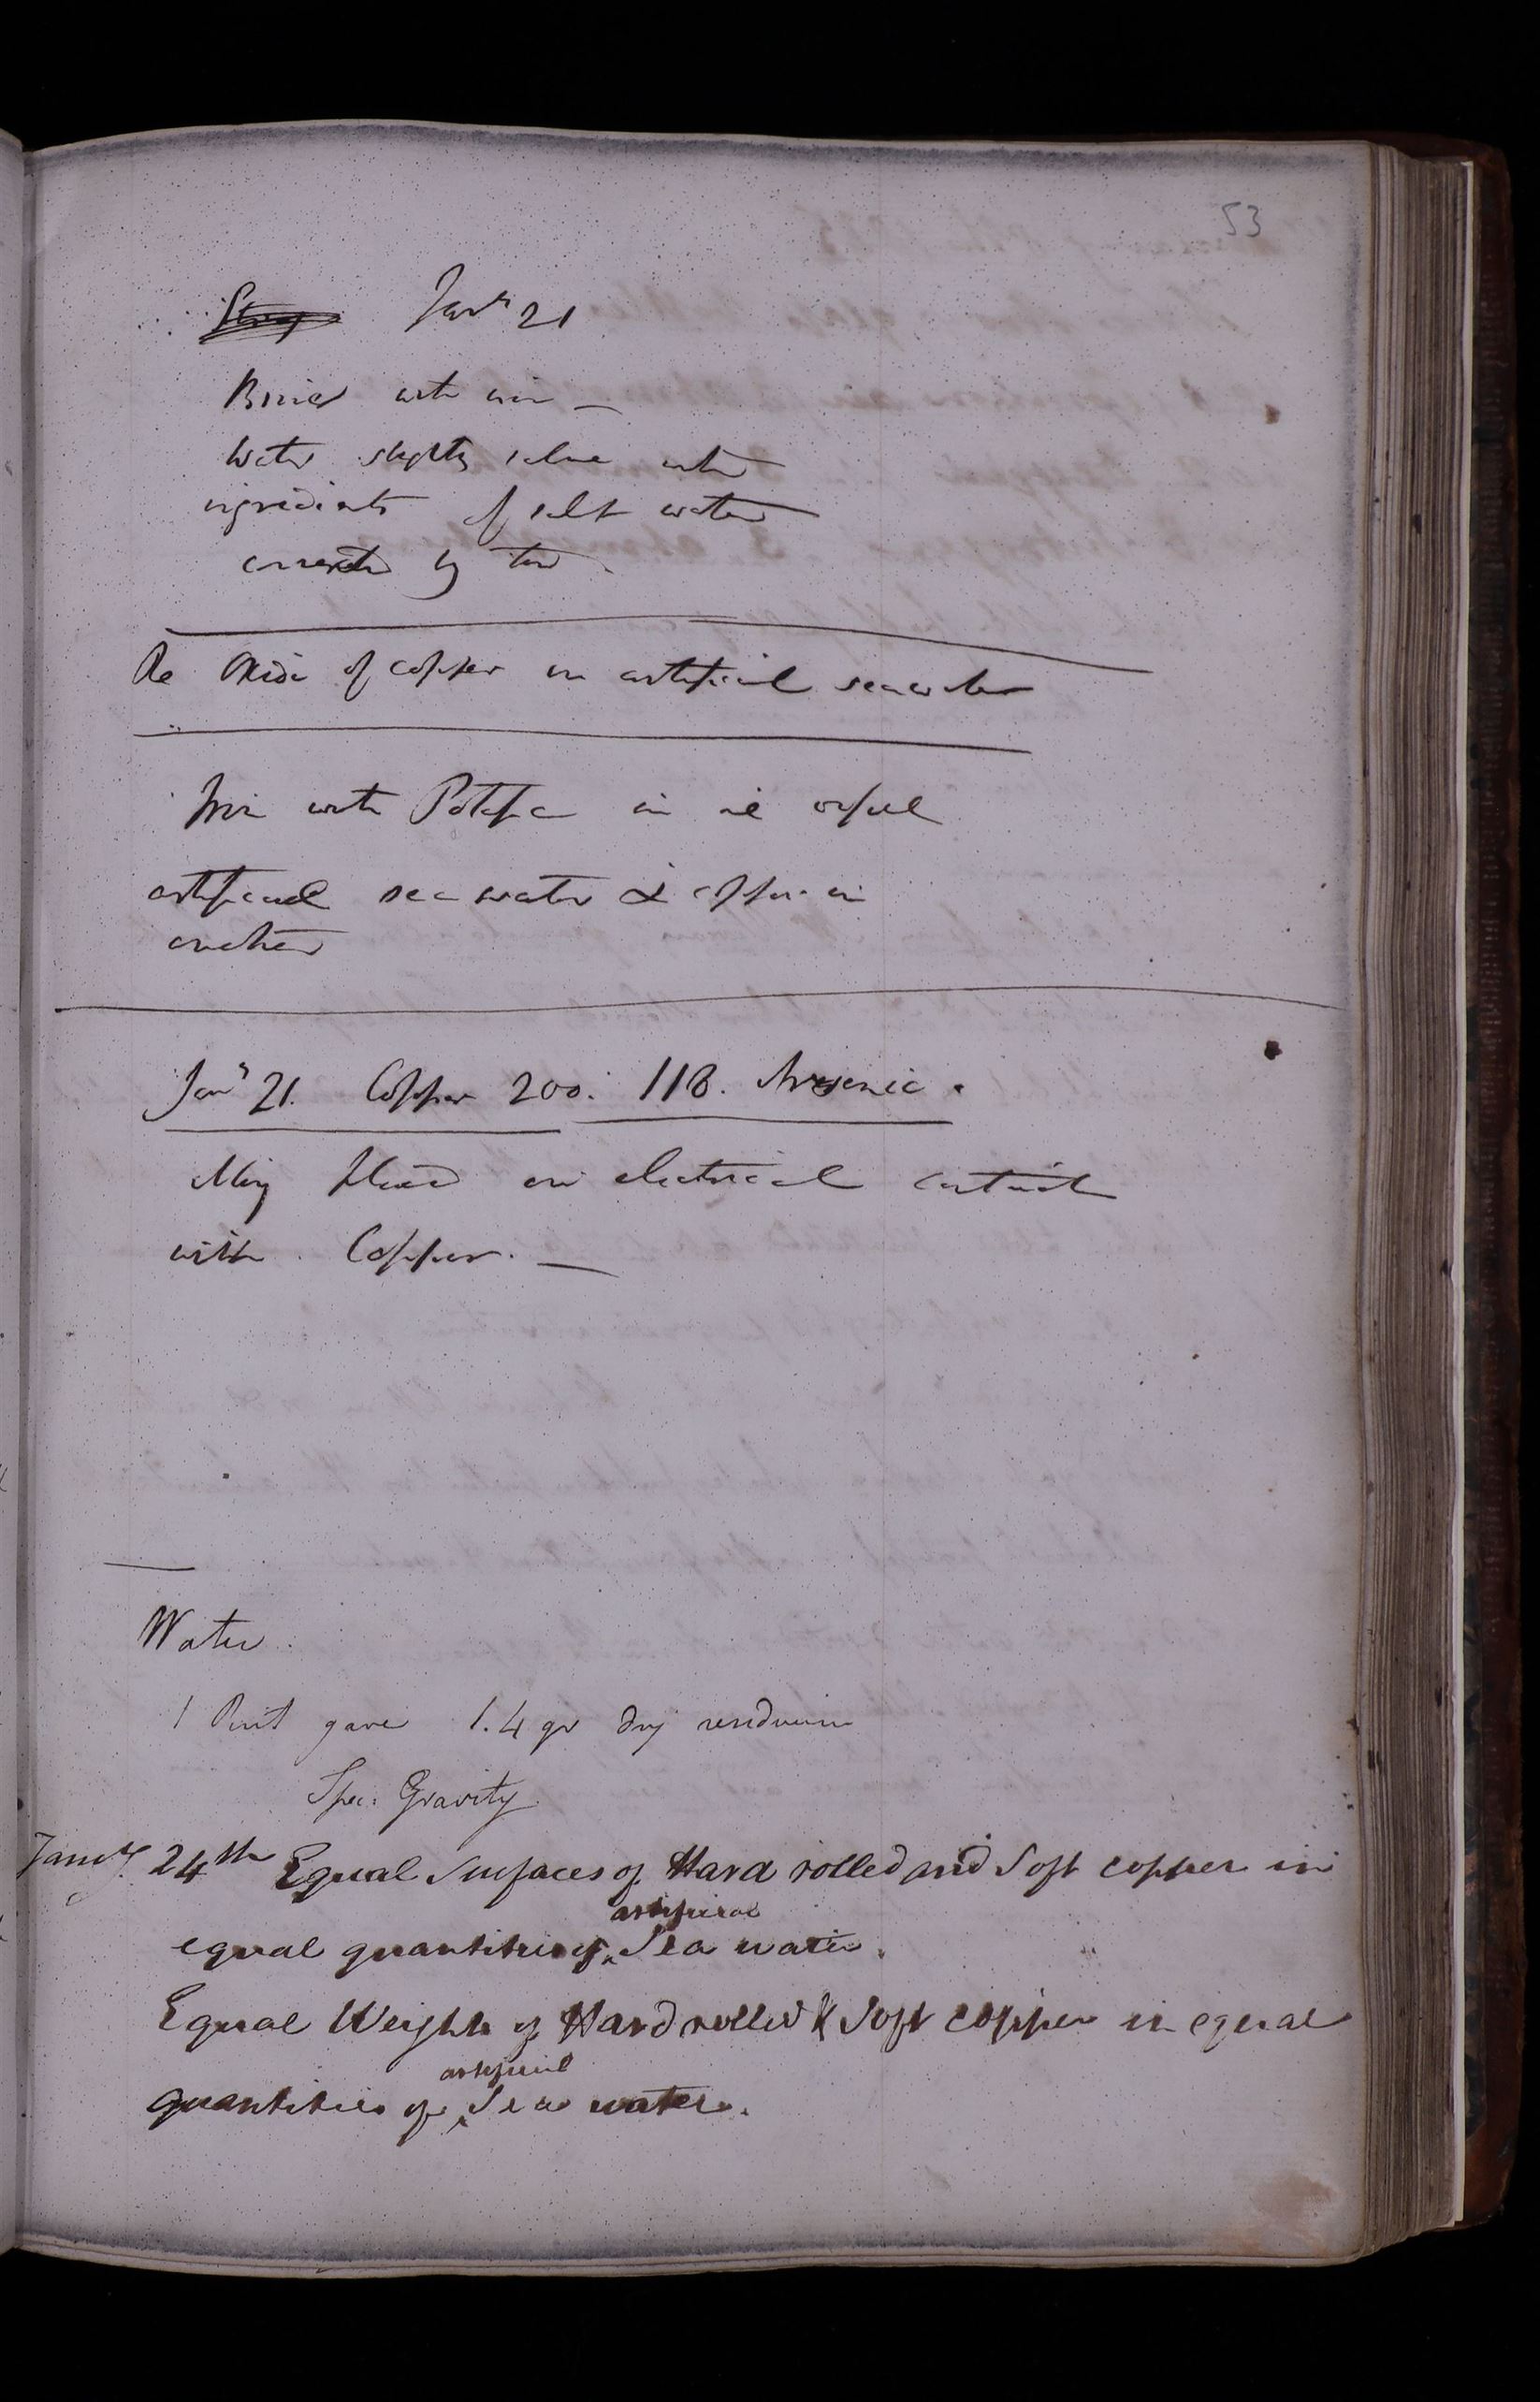 53
Jany 21
with iron —
Water slightly saline with
ingredients of salt water
connected by tow.
Oxide of copper in artificial seawater
Iron with Potassa in one vessel
artificial sea water & copper in
another
Jany 21. Copper 200. 118. Arsenic.
Alloy placed in electrical contact
with Copper. —
Water
1 Pint gave 1.4 gr dry residuum
Spec: Gravity
Jany 24th Equal Surfaces of Hard rolled and Soft copper in
artificial
equal quantities of Sea water.
Equal Weights of Hard rolled & Soft copper in equal
artificial
quantities of Sea water.